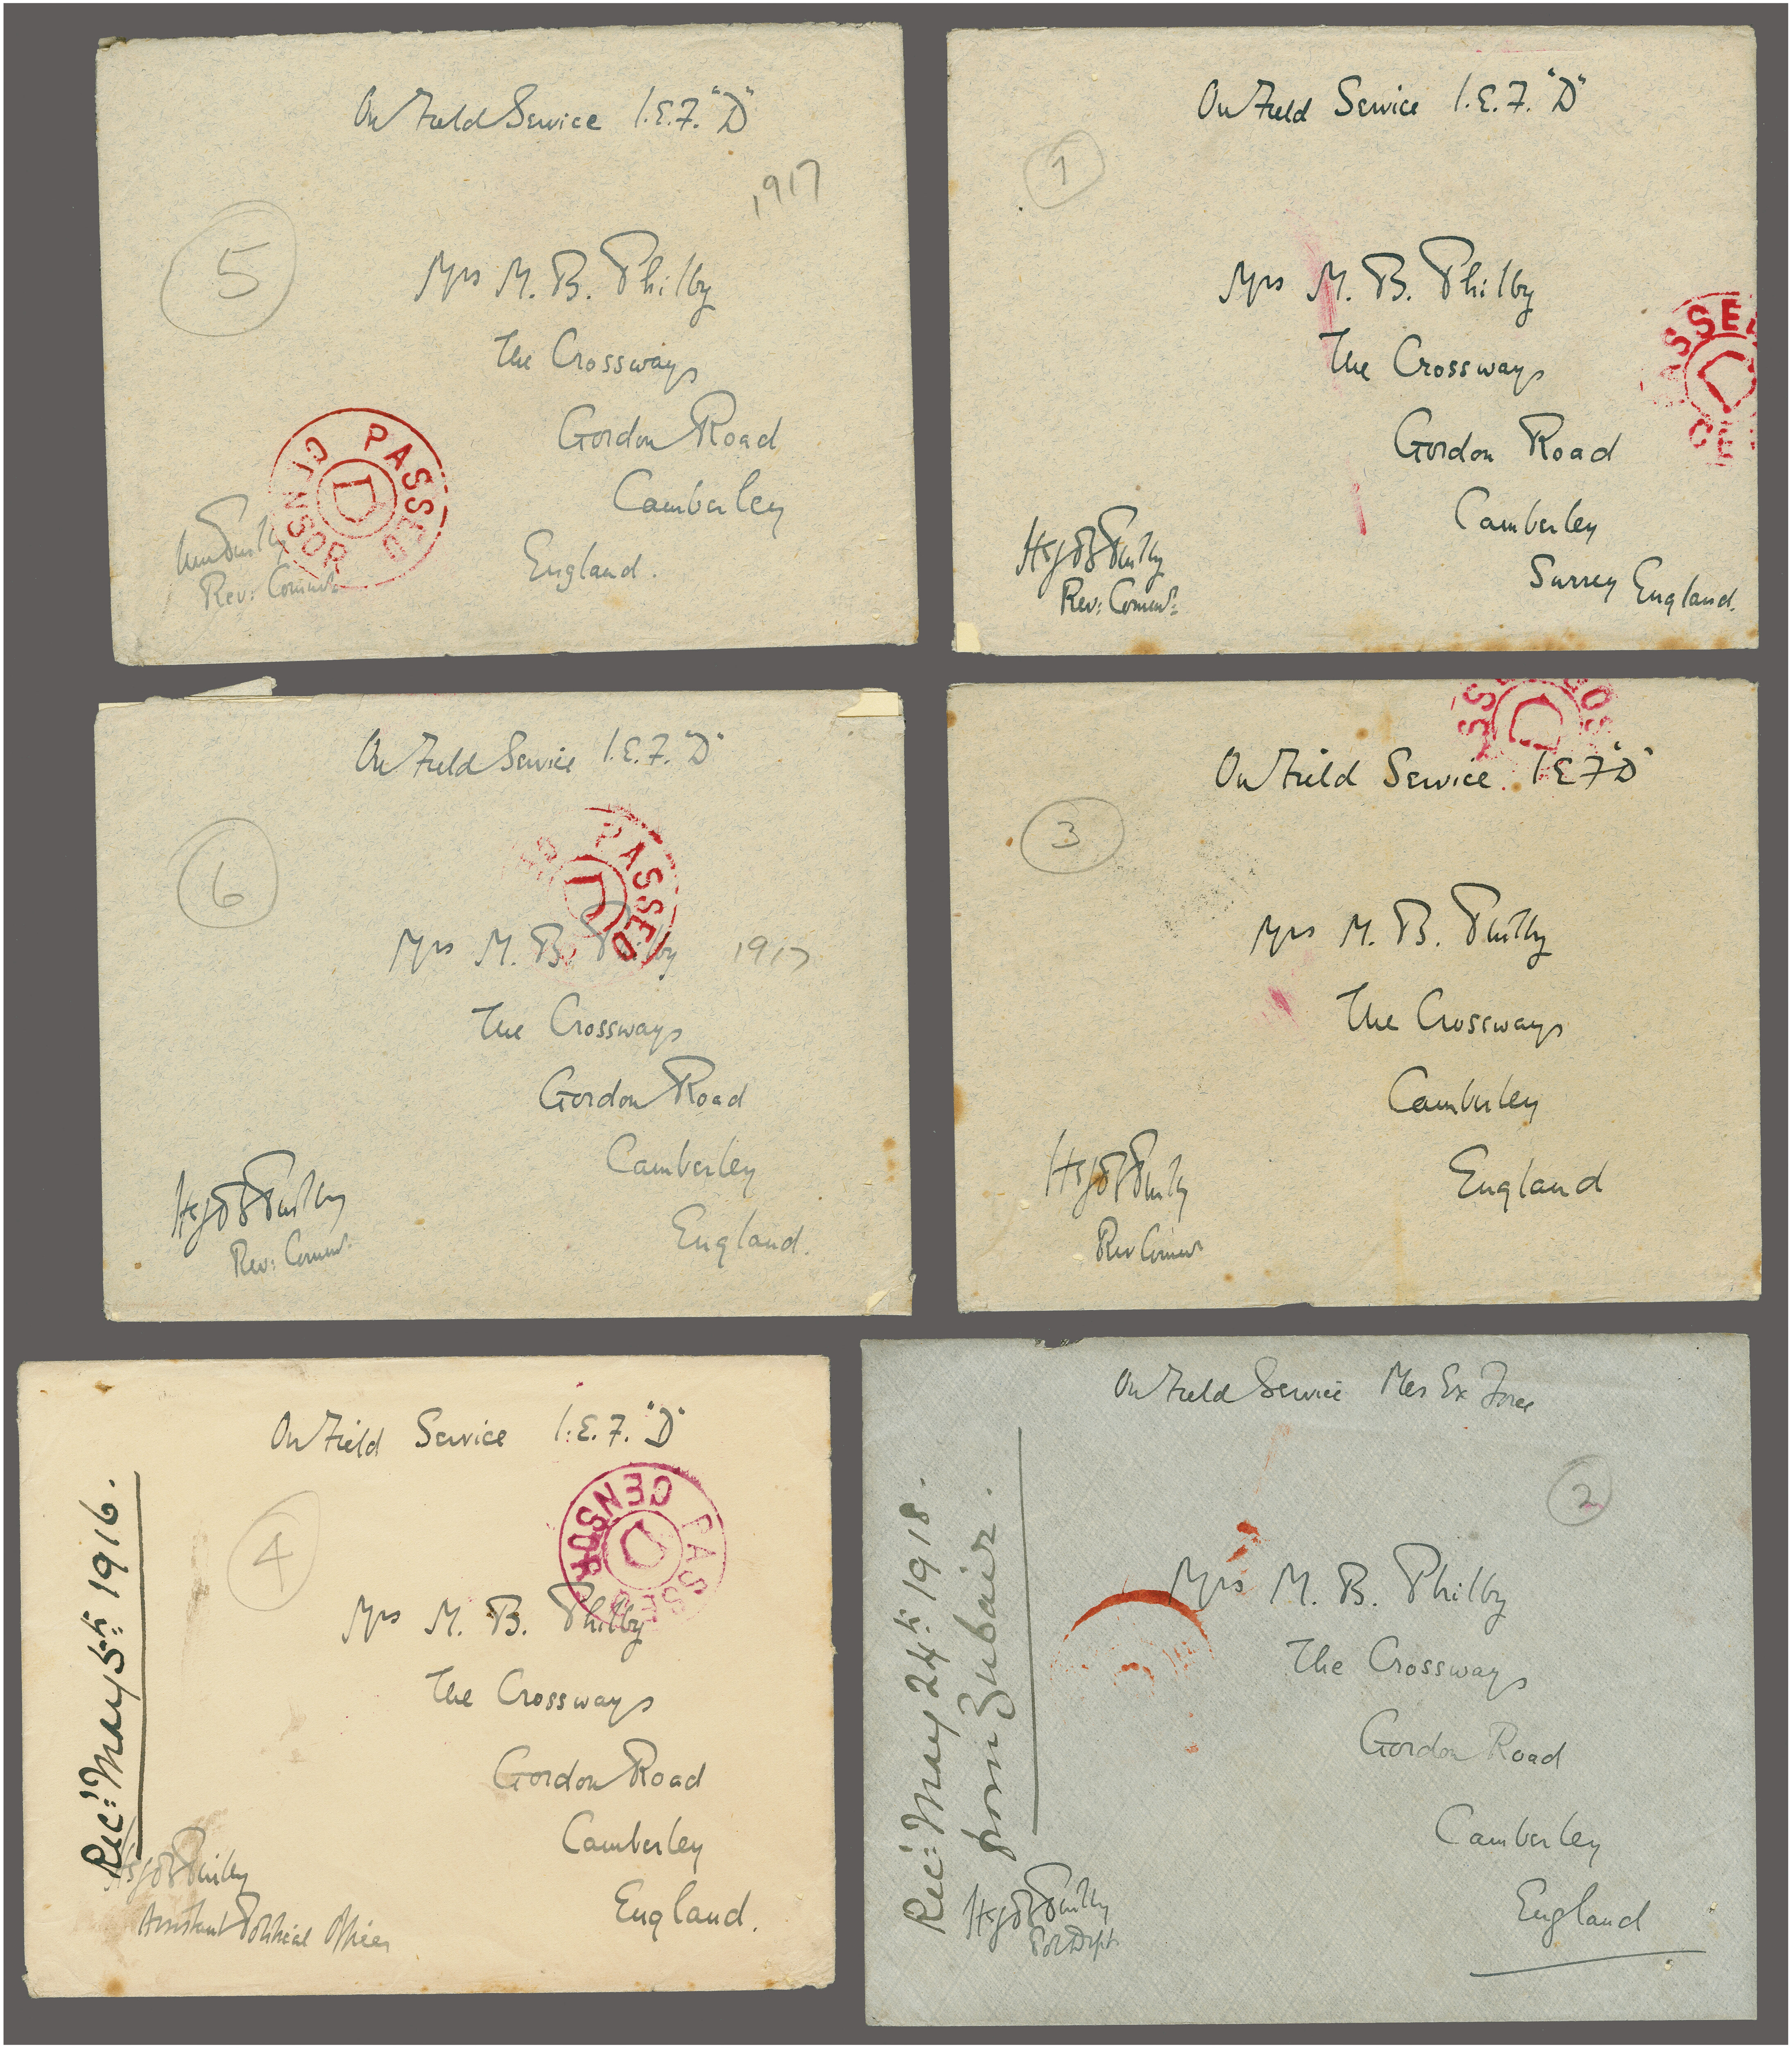 On Field Service I.E.F. "D"
1917
5
Mrs M. B. Philby
The Crossways
Gordon Road
Camberley
England.
PASSED CENSOR
D
Philby
Rev: Commr:
On Field Service I.E.F. "D"
1
Mrs M. B. Philby
The Crossways
Gordon Road
Camberley
Surrey England.
ASSE
D
CE
HStJBPhilby
Rev: Commr:
On Field Service I.E.F. "D"
6
PASSED CE
D
Mrs M. B. Philby 1917
The Crossways
Gordon Road
Camberley
England.
HStJBPhilby
Rev: Commr:
SS SOR
D
On Field Service. I E F "D"
3
Mrs M. B. Philby
The Crossways
Camberley
England
HStJBPhilby
Rev Commr
On Field Service I.E.F. "D"
Rec:d May 5th: 1916.
4
PASSED CENSOR
D
Mrs M. B. Philby
The Crossways
Gordon Road
Camberley
England.
HStJBPhilby
Assistant Political Officer
On Field Service Mes Ex Force
Rec:d May 24th: 1918.
from Zubair.
2
Mrs M. B. Philby
The Crossways
Gordon Road
Camberley
England
HStJBPhilby
Pol Dept